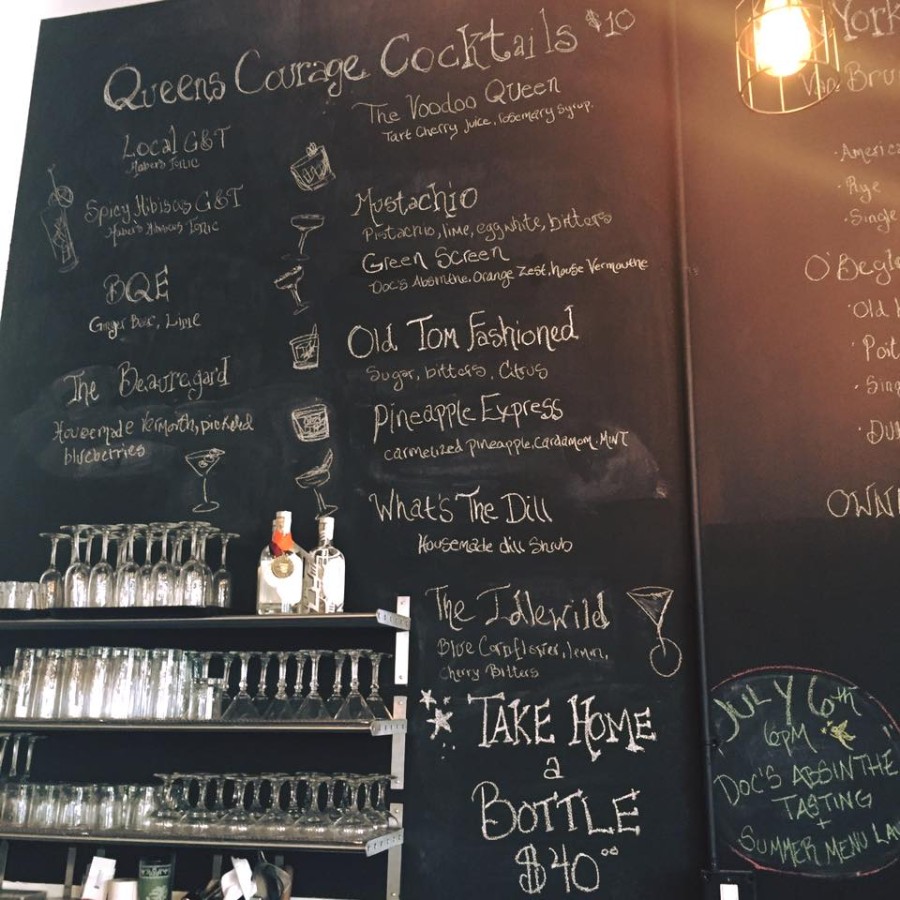 Queens Courage Cocktails $10
Local G&T
Haber's Tonic
Spicy Hibiscus G&T
Haber's Hibiscus Tonic
BQE
Ginger Beer, Lime
The Beauregard
Housemade Vermouth, pickeled
blueberries
The Voodoo Queen
Tart Cherry Juice, rosemary Syrup.
Mustachio
Pistachio, lime, egg white, bitters
Green Screen
Doc's Absinthe. Orange Zest. house Vermouthe
Old Tom Fashioned
Sugar, bitters, Citrus
Pineapple Express
carmelized pineapple. cardamom. MINT
What's The Dill
Housemade dill Shrub
The Idlewild
Blue Cornflower, lemon,
Cherry Bitters
TAKE HOME
a
BOTTLE
$40.00
York
Van Bru
· America
· Rye
· Single
O'Begle
· Old
· Poit
· Sing
· Du
OWN
JULY 6th
6PM
DOC'S ABSINTHE
TASTING
+
SUMMER MENU LAU